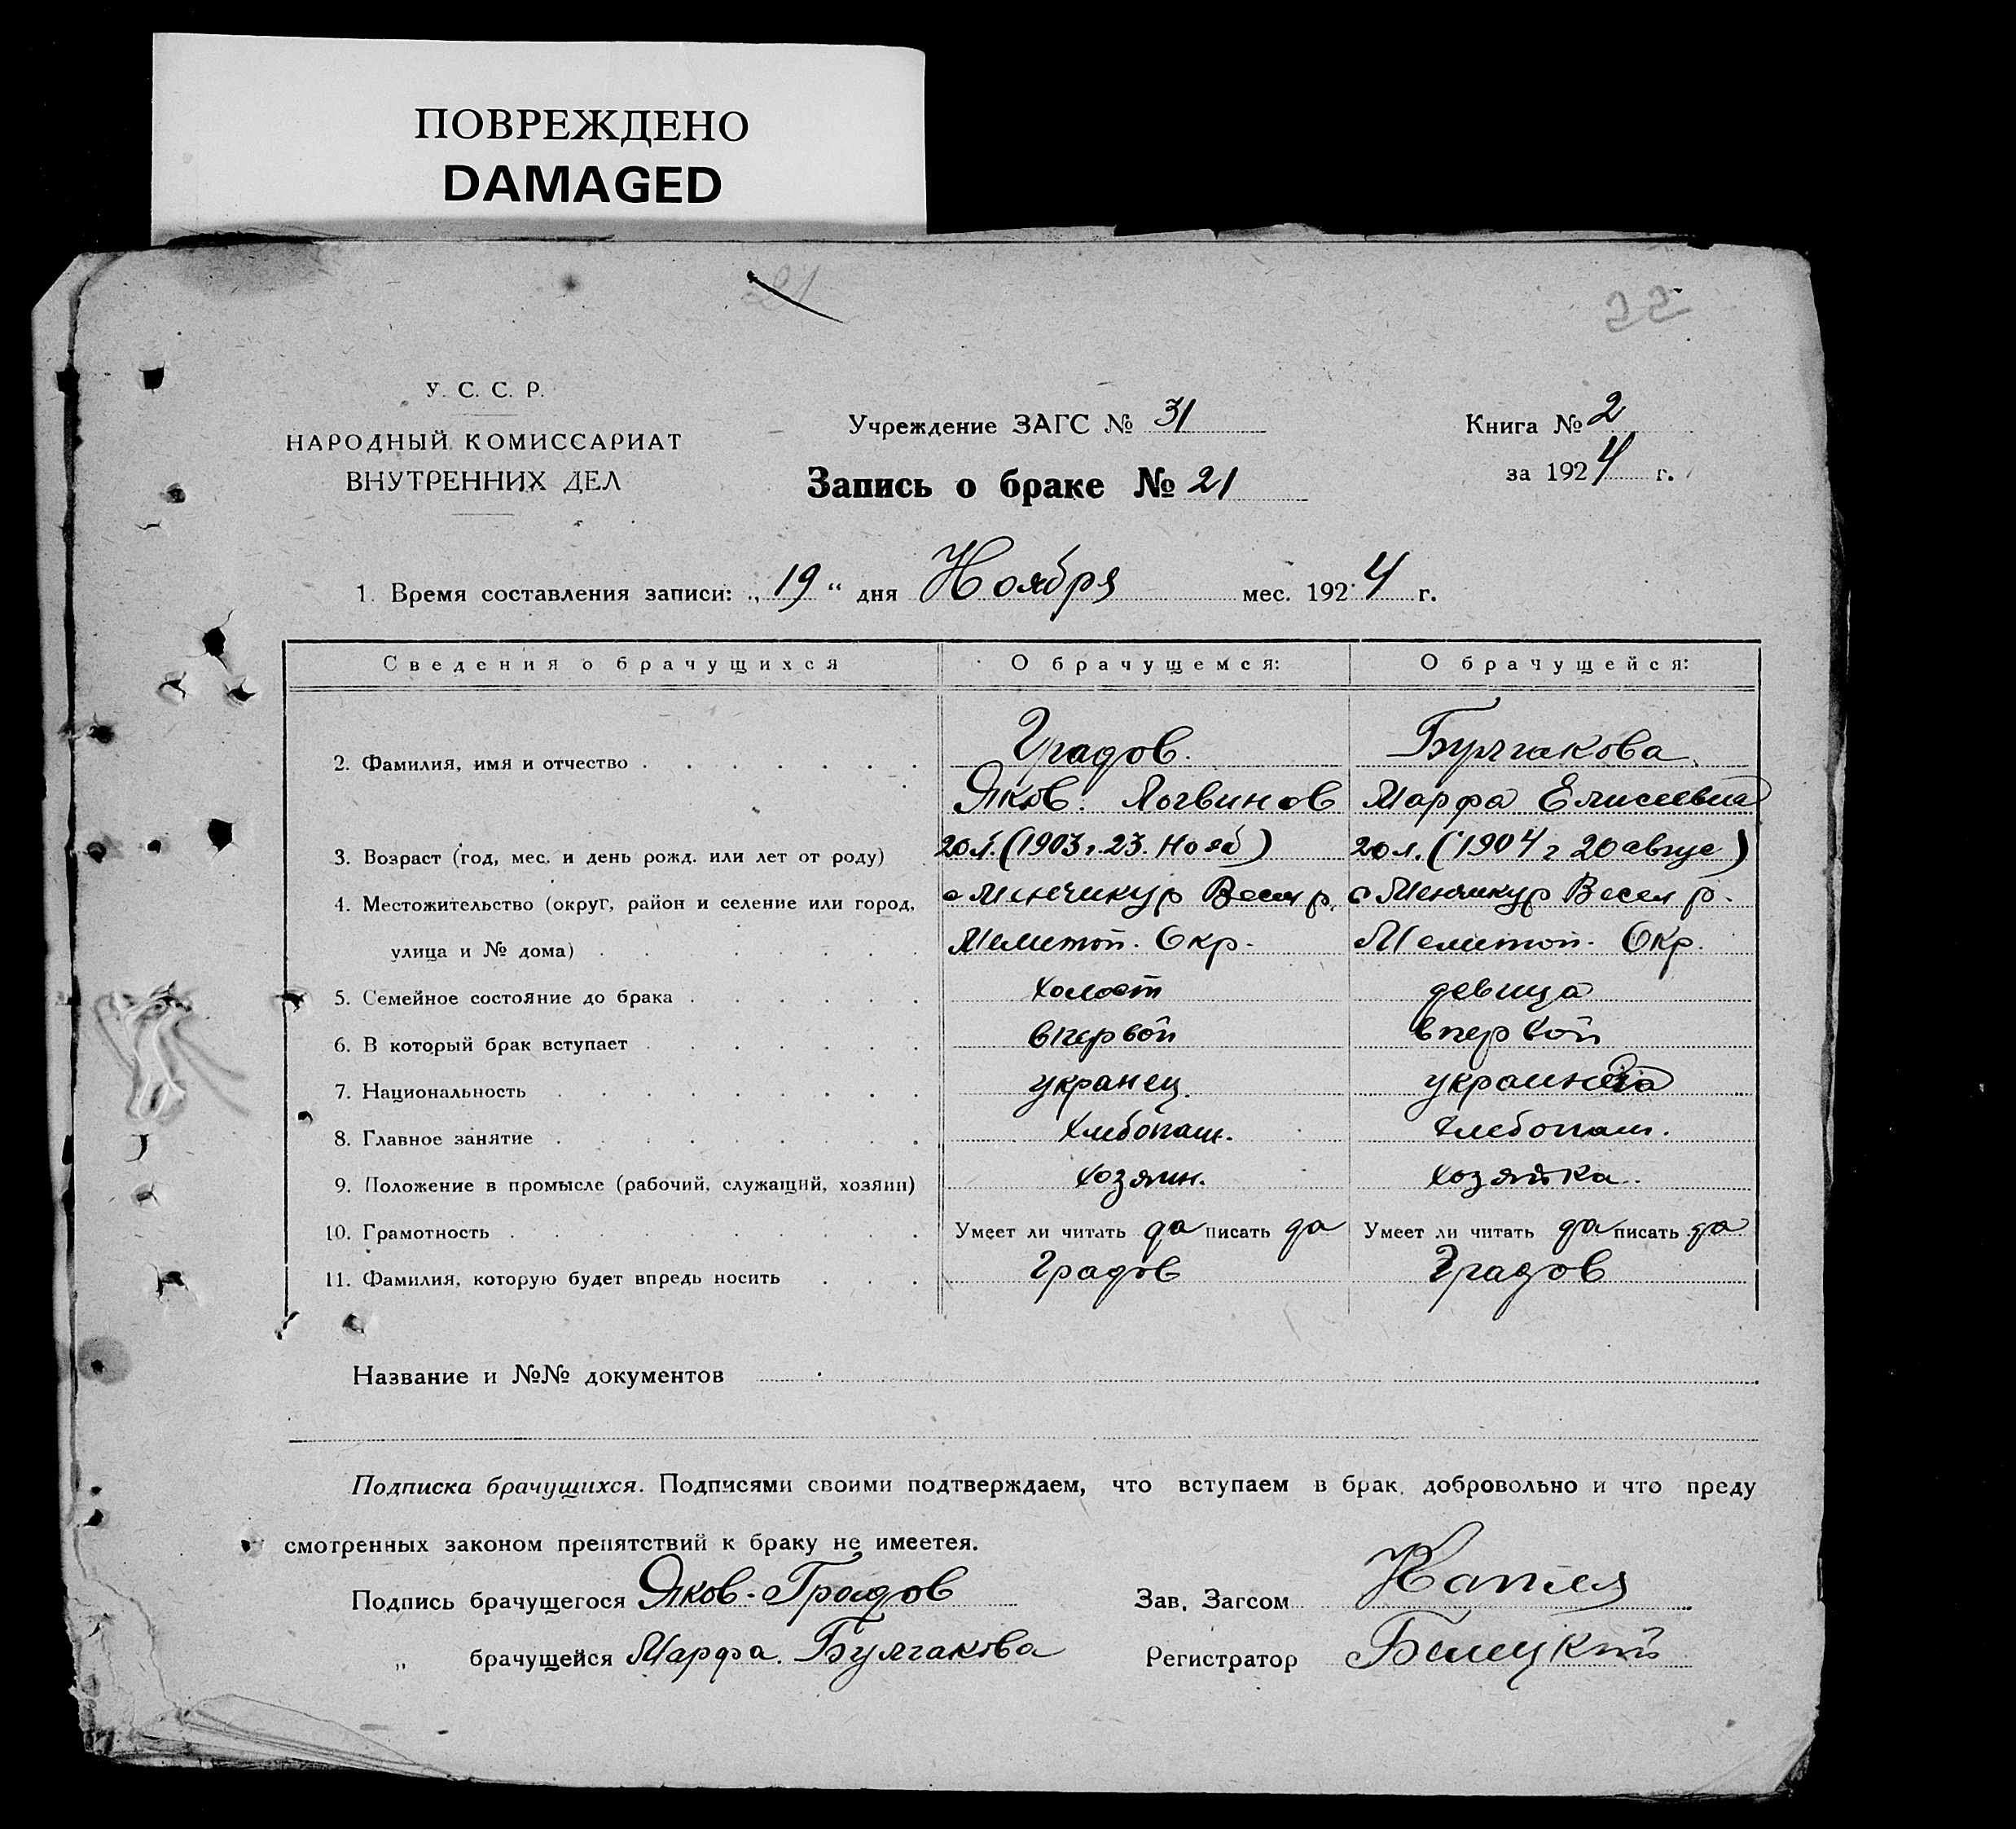 ПОВРЕЖДЕНО
DAMAGED
21
22
У. С. С. Р.
НАРОДНЫЙ КОМИССАРИАТ
ВНУТРЕННИХ ДЕЛ
Учреждение ЗАГС № 31
Запись о браке № 21
Книга № 2
за 1924 г.
1. Время составления записи: „19“ дня Ноября мес. 1924 г.
Сведения о брачущихся О брачущемся: О брачущейся:
2. Фамилия, имя и отчество Градов. Булгакова
Яков. Логвинов Марфа Елисеевна
3. Возраст (год, мес. и день рожд. или лет от роду) 20 л. (1903 г. 23. Нояб) 20 л. (1904 г 20 авгус)
4. Местожительство (округ, район и селение или город, с Менчикур Весел р. с Менчикур Весел р.
улица и № дома) Мелитоп. Окр. Мелитоп. Окр.
5. Семейное состояние до брака холост девица
6. В который брак вступает впервой впервой
7. Национальность укранец
8. Главное занятие хлебопаш. хлебопаш.
9. Положение в промысле (рабочий, служащий, хозяин) хозяин. хозяйка.
10. Грамотность Умеет ли читать да писать да Умеет ли читать да писать да
11. Фамилия, которую будет впредь носить Градов Градов
Название и №№ документов
Подписка брачущихся. Подписями своими подтверждаем, что вступаем в брак добровольно и что преду
смотренных законом препятствий к браку не имеется.
Подпись брачущегося Яков. Градов Зав. Загсом
„ брачущейся Марфа. Булгакова Регистратор Белецкий